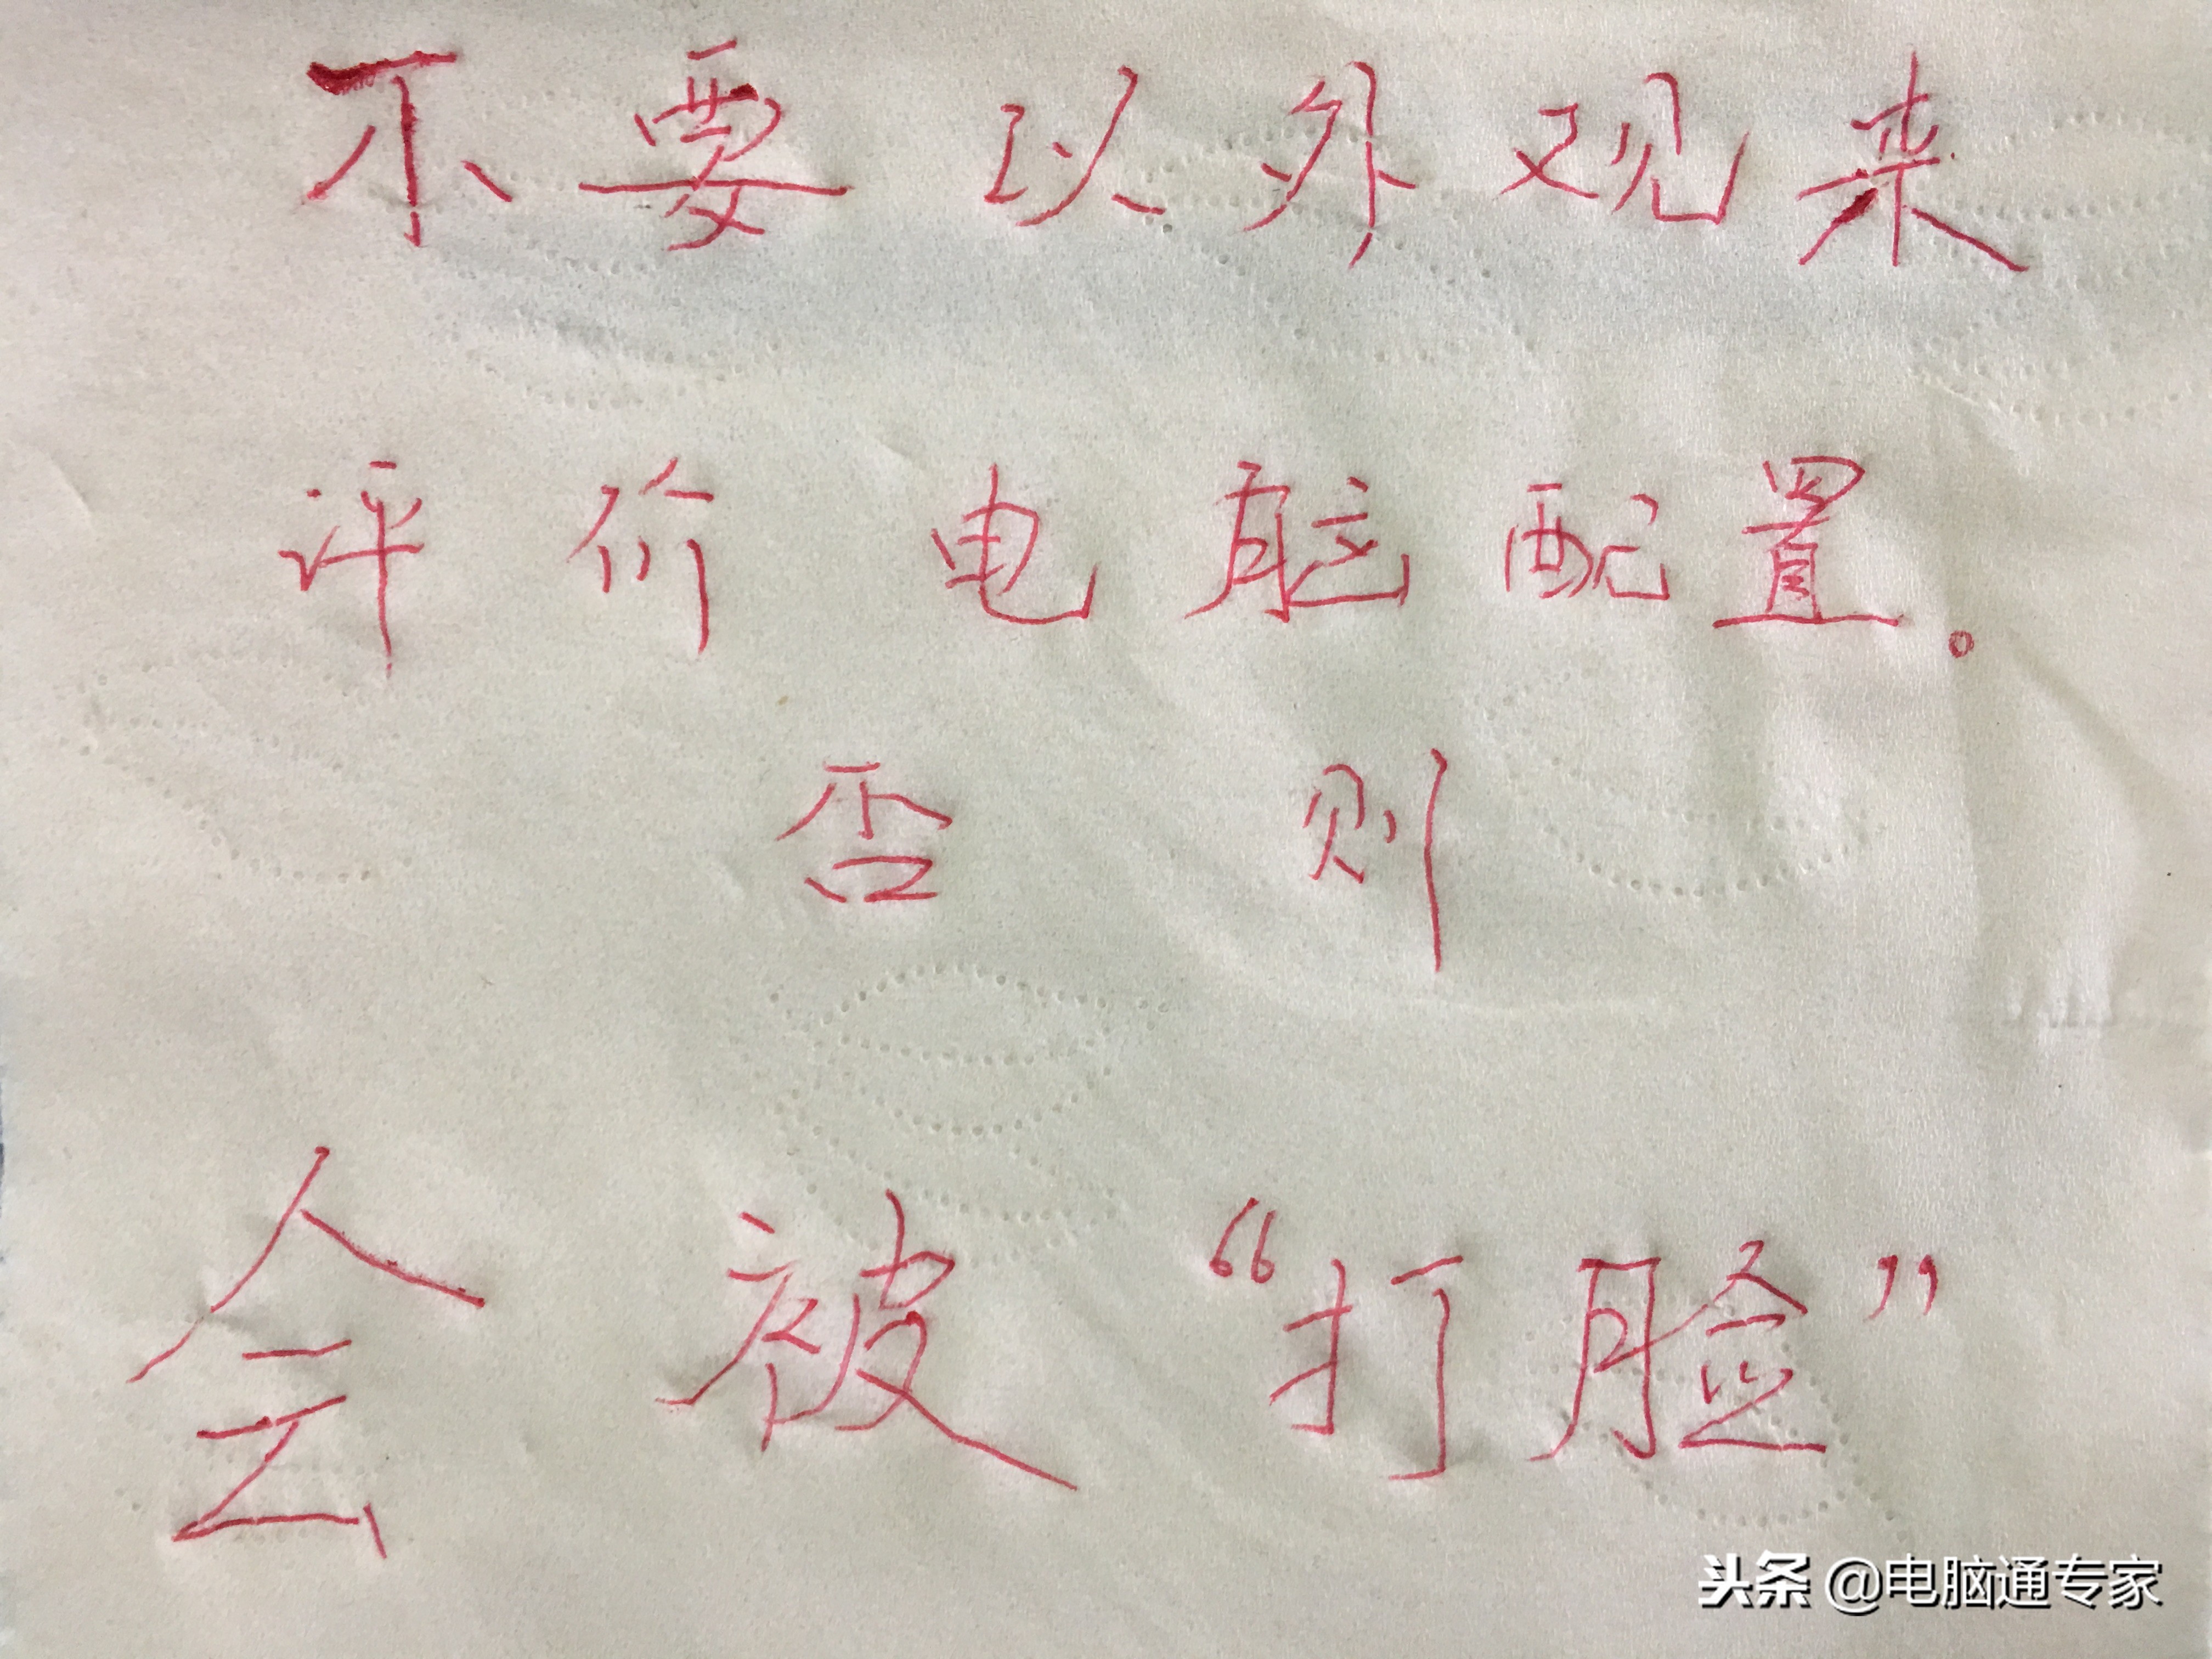 不要以外观来
评价电脑配置。
否则
会被“打脸”
头条 @电脑通专家